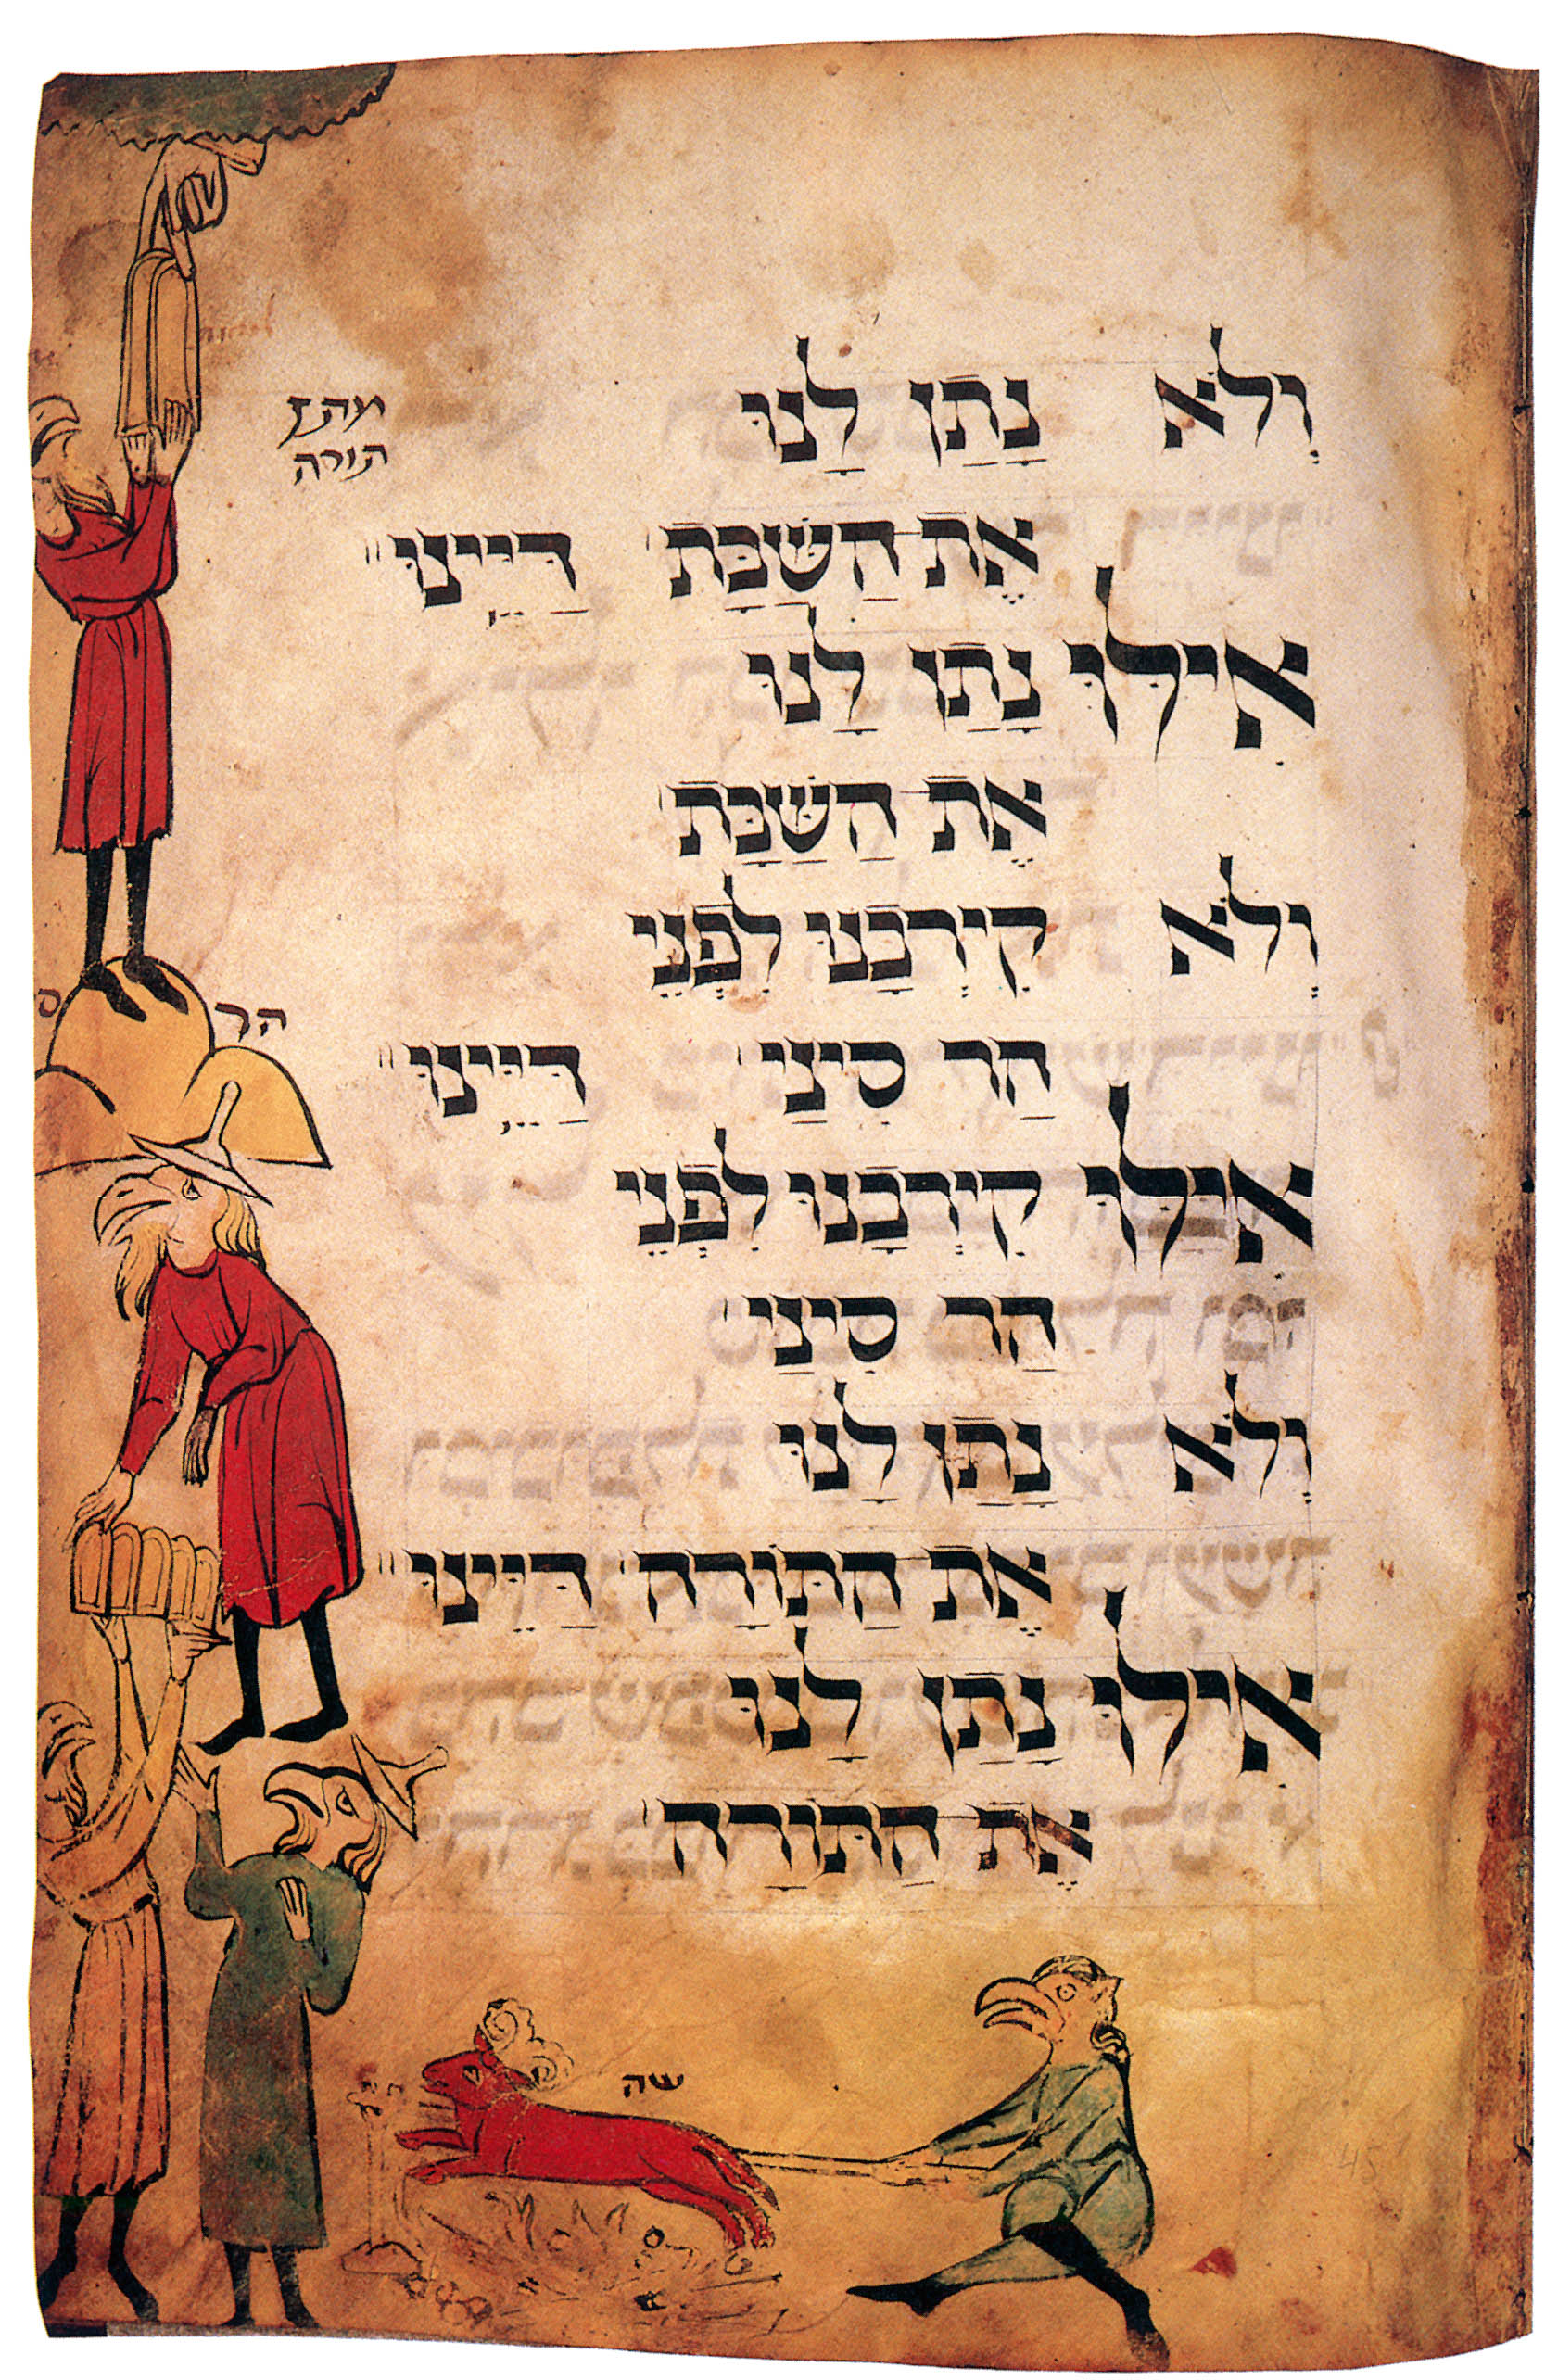 וְלֹא נָתַן לָנוּ
מתן
תורה
אֶת הַשַּׁבָּת דַּיֵּינוּ
אִילּוּ נָתַן לָנוּ
אֶת הַשַּׁבָּת
וְלֹא קֵירְבָנוּ לִפְנֵי
הר
ס
הַר סִינַי דַּיֵּינוּ
אִילּוּ קֵירְבָנוּ לִפְנֵי
הַר סִינַי
וְלֹא נָתַן לָנוּ
אֶת הַתּוֹרָה דַּיֵּינוּ
אִילּוּ נָתַן לָנוּ
אֶת הַתּוֹרָה
שה